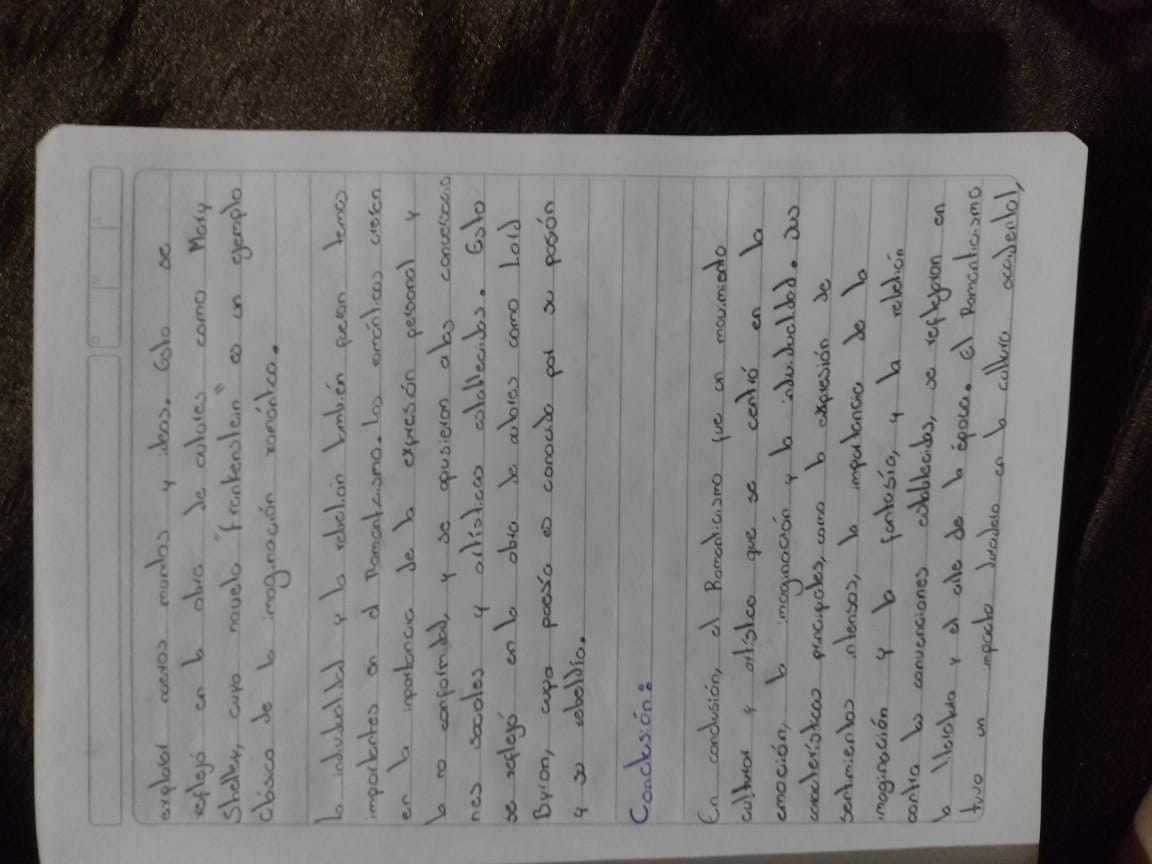 explorar nuevos mundos y ideas. Esto se
reflejó en la obra de autores como Mary
Shelley, cuya novela "frankenstein" es un ejemplo
clásico de la imaginación romántica.
la individualidad y la rebelión también fueron temas
importantes en el Romanticismo. los románticos creían
en la importancia de la expresión personal y
la no conformidad, y se opusieron a las convensacio
nes sociales y artísticas establecidas. Esto
se reflejó en la obra de autores como Lord
Byron, cuya poesía es conocida por su pasión
y su rebeldía.
Conclusión:
En conclusión, el Romanticismo fue un movimiento
cultural y artístico que se centró en la
emoción, la imaginación y la individualidad. Sus
características principales, como la expresión de
sentimientos intensos, la importancia de la
imaginación y la fantasía, y la relación
contra las convenciones establecidas, se reflejaron en
la literatura y el arte de la época. El Romanticismo
tuvo un impacto duradero en la cultura occidental,